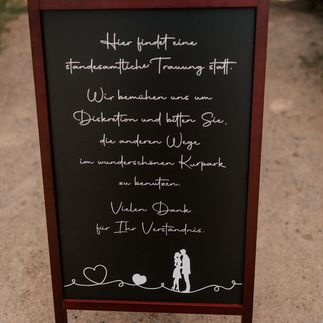 Hier findet eine
standesamtliche Trauung statt.
Wir bemühen uns um
Diskretion und bitten Sie,
die anderen Wege
im wunderschönen Kurpark
zu benutzen.
Vielen Dank
für Ihr Verständnis.